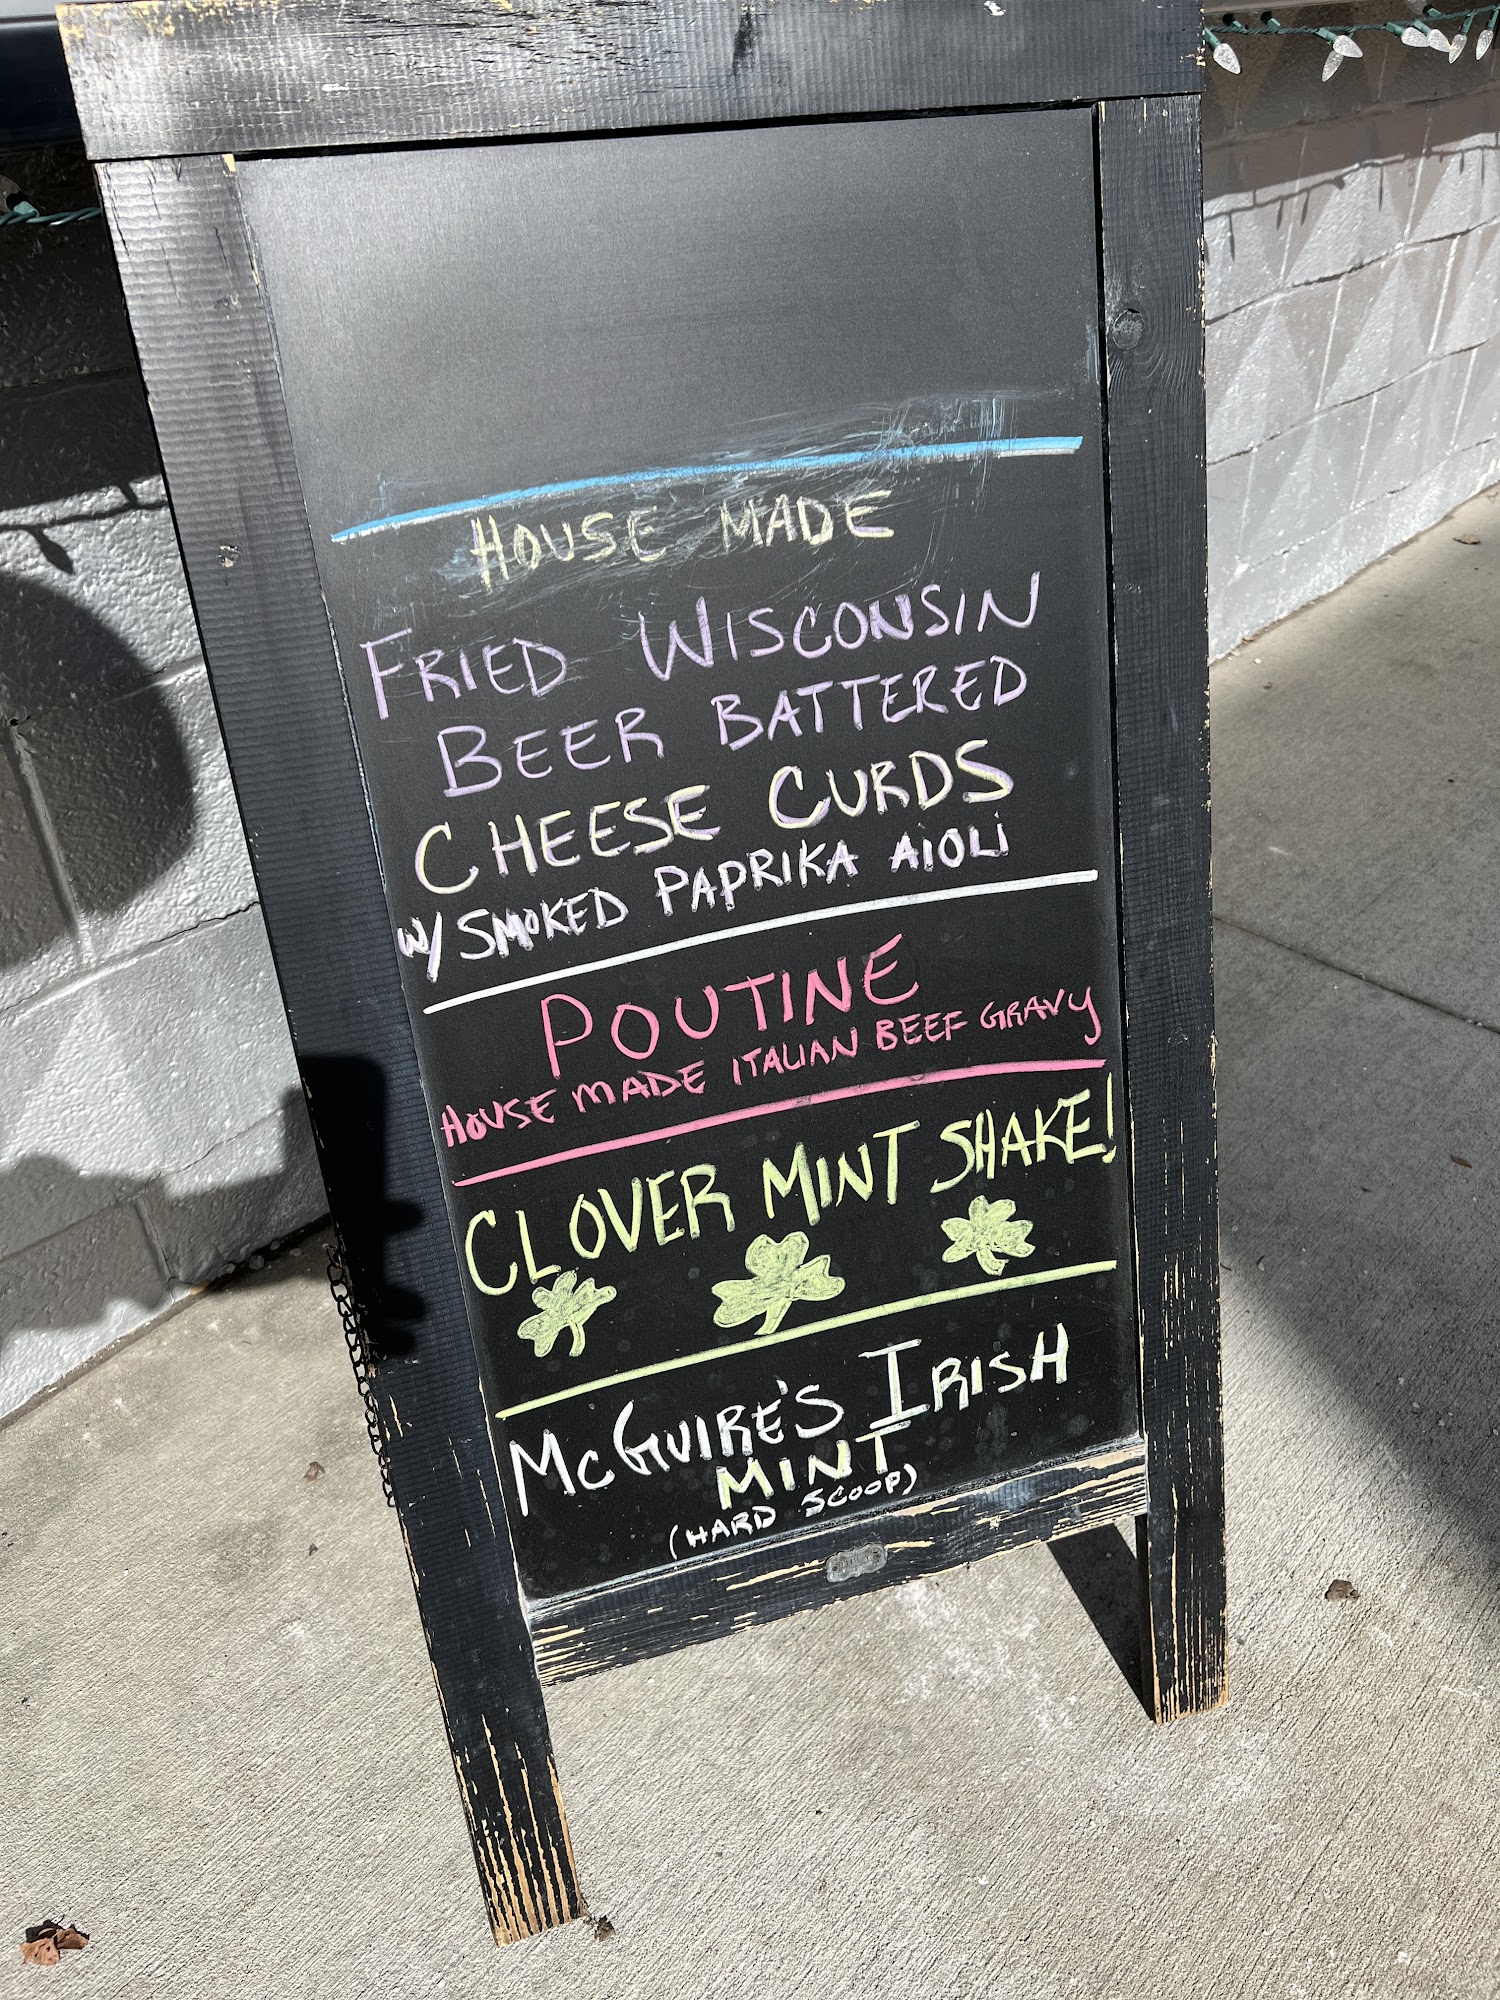 HOUSE MADE
FRIED WISCONSIN
BEER BATTERED
CHEESE CURDS
W/ SMOKED PAPRIKA AIOLI
POUTINE
HOUSE MADE ITALIAN BEEF GRAVY
CLOVER MINT SHAKE!
McGUIRE'S IRISH
MINT
(HARD SCOOP)